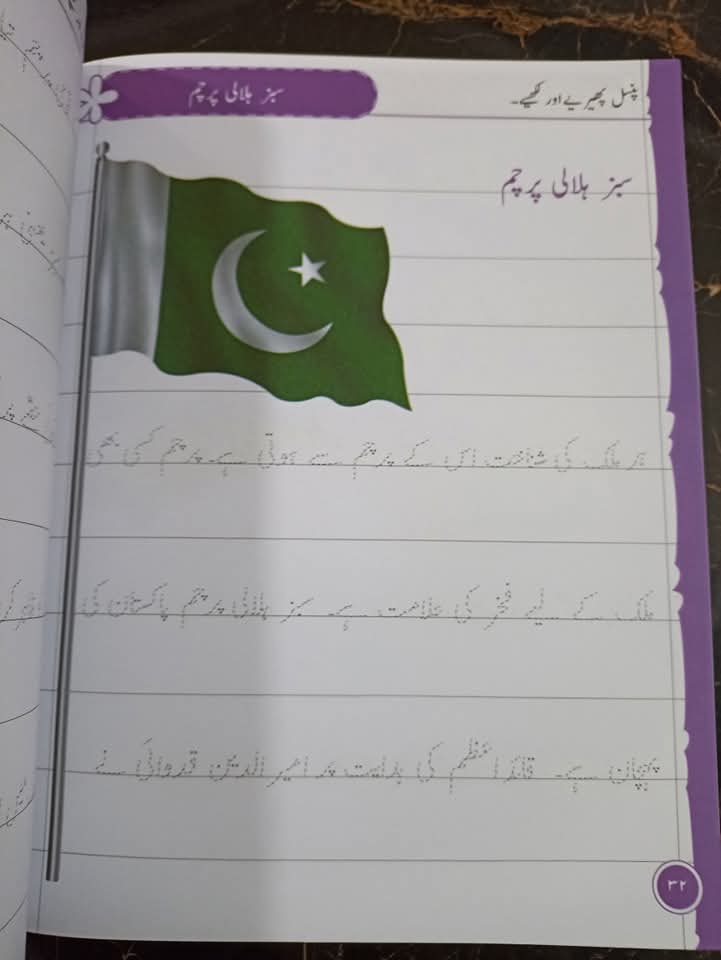 سبز ہلالی پرچم
پنسل پھیریے اور لکھیے۔
سبز ہلالی پرچم
ہر ملک کی شناخت اس کے پرچم سے ہوتی ہے۔ پرچم کسی بھی
ملک کے لیے فخر کی علامت ہے۔ سبز ہلالی پرچم پاکستان کی
پہچان ہے۔ قائد اعظم کی ہدایت پر امیر الدین قدوائی نے
۳۲